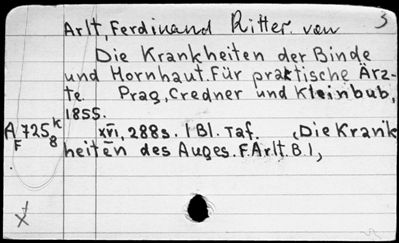 Arlt, Ferdinand Ritter von 3
Die Krankheiten der Binde
und Hornhaut. Für praktische Ärz-
te. Prag, Credner und Kleinbub,
1855.
A 725 K XVI, 288s. 1 Bl. Taf. (Die Krank
F 8 heiten des Auges. F. Arlt. B. 1,
X